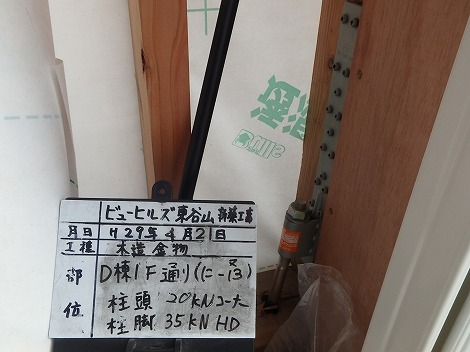 ビューヒルズ東谷山 新築工事
月日 H29年4月21日
工種 木造金物
部位 D棟1F通り(に-13)
又
柱頭 20KNコーナー
柱脚 35KN HD